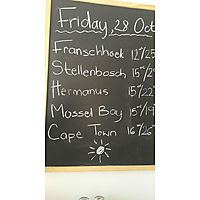 Friday, 28 Oct
Franschhoek 12°/25
Stellenbosch 15°/2
Hermanus 15°/22°
Mossel Bay 15°/19°
Cape Town 16°/26°